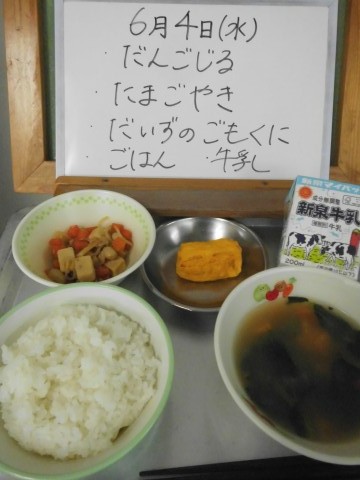 6月4日(水)
・だんごじる
・たまごやき
・だいずのごもくに
・ごはん ・牛乳
新泉牛乳
200ml